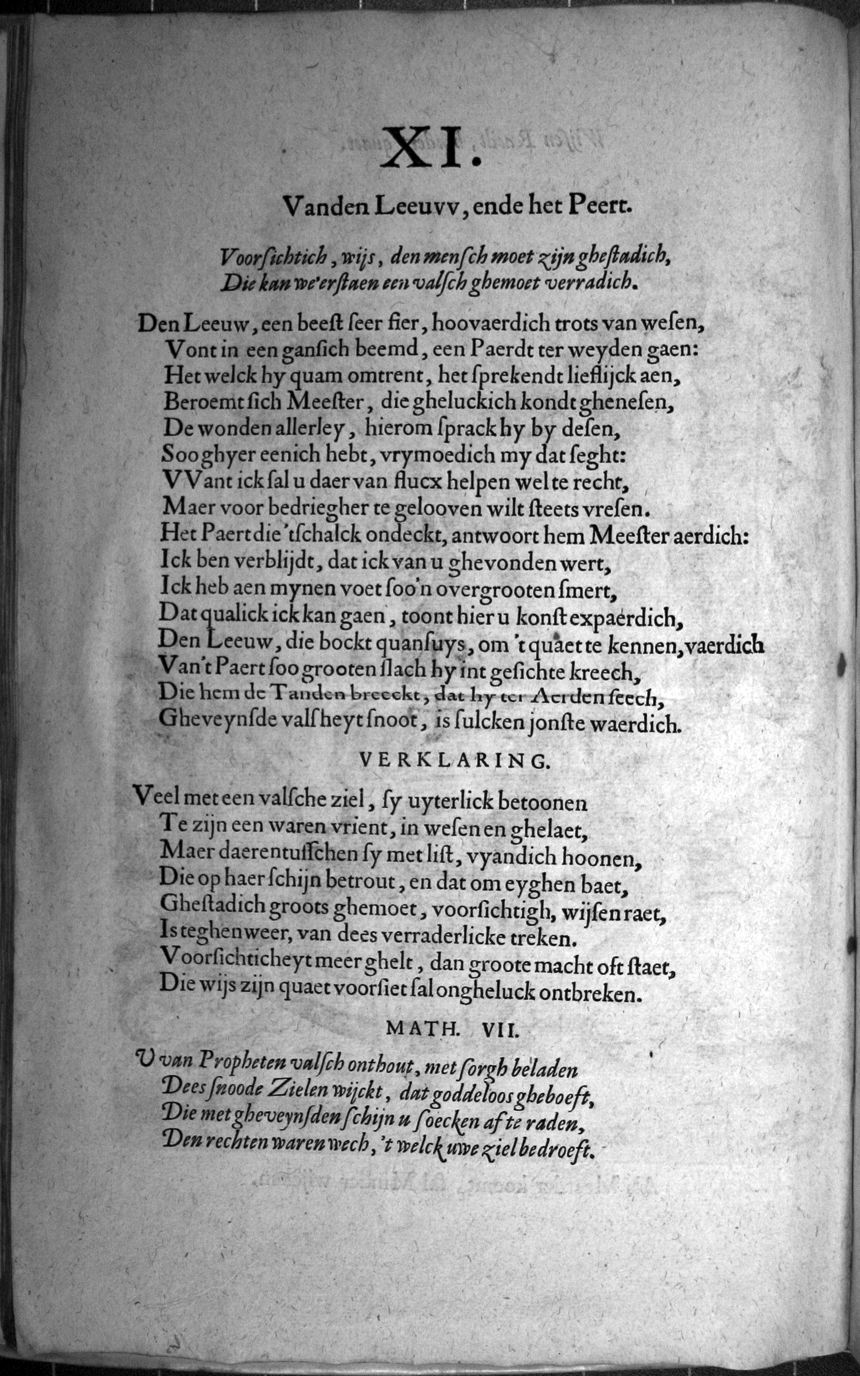 XI.
Vanden Leeuvv, ende het Peert.
Voorſichtich, wijs, den menſch moet zijn gheſtadich,
Die kan we'erſtaen een valſch ghemoet verradich.
Den Leeuw, een beeſt ſeer fier, hoovaerdich trots van weſen,
Vont in een ganſich beemd, een Paerdt ter weyden gaen:
Het welck hy quam omtrent, het ſprekendt lieflijck aen,
Beroemt ſich Meeſter, die gheluckich kondt gheneſen,
De wonden allerley, hierom ſprack hy by deſen,
Soo ghy er eenich hebt, vrymoedich my dat ſeght:
VVant ick ſal u daer van flucx helpen wel te recht,
Maer voor bedriegher te gelooven wilt ſteets vreſen.
Het Paert die 'tſchalck ondeckt, antwoort hem Meeſter aerdich:
Ick ben verblijdt, dat ick van u ghevonden wert,
Ick heb aen mynen voet ſoo'n overgrooten ſmert,
Dat qualick ick kan gaen, toont hier u konſt expaerdich,
Den Leeuw, die bockt quanſuys, om 't quaet te kennen, vaerdich
Van't Paert ſoo grooten ſlach hy int geſichte kreech,
Die hem de Tanden breeckt, dat hy ter Aerden ſeech,
Gheveynſde valſheyt ſnoot, is ſulcken jonſte waerdich.
VERKLARING.
Veel met een valſche ziel, ſy uyterlick betoonen
Te zijn een waren vrient, in weſen en ghelaet,
Maer daerentuſſchen ſy met liſt, vyandich hoonen,
Die op haer ſchijn betrout, en dat om eyghen baet,
Gheſtadich groots ghemoet, voorſichtigh, wijſen raet,
Is teghenweer, van dees verraderlicke treken.
Voorſichticheyt meer ghelt, dan groote macht oft ſtaet,
Die wijs zijn quaet voorſiet ſal ongheluck ontbreken.
MATH. VII.
U van Propheten valſch onthout, met ſorgh beladen
Dees ſnoode Zielen wijckt, dat goddeloos gheboeft,
Die met gheveynſden ſchijn u ſoecken af te raden,
Den rechten waren wech, 't welck uwe ziel bedroeft.